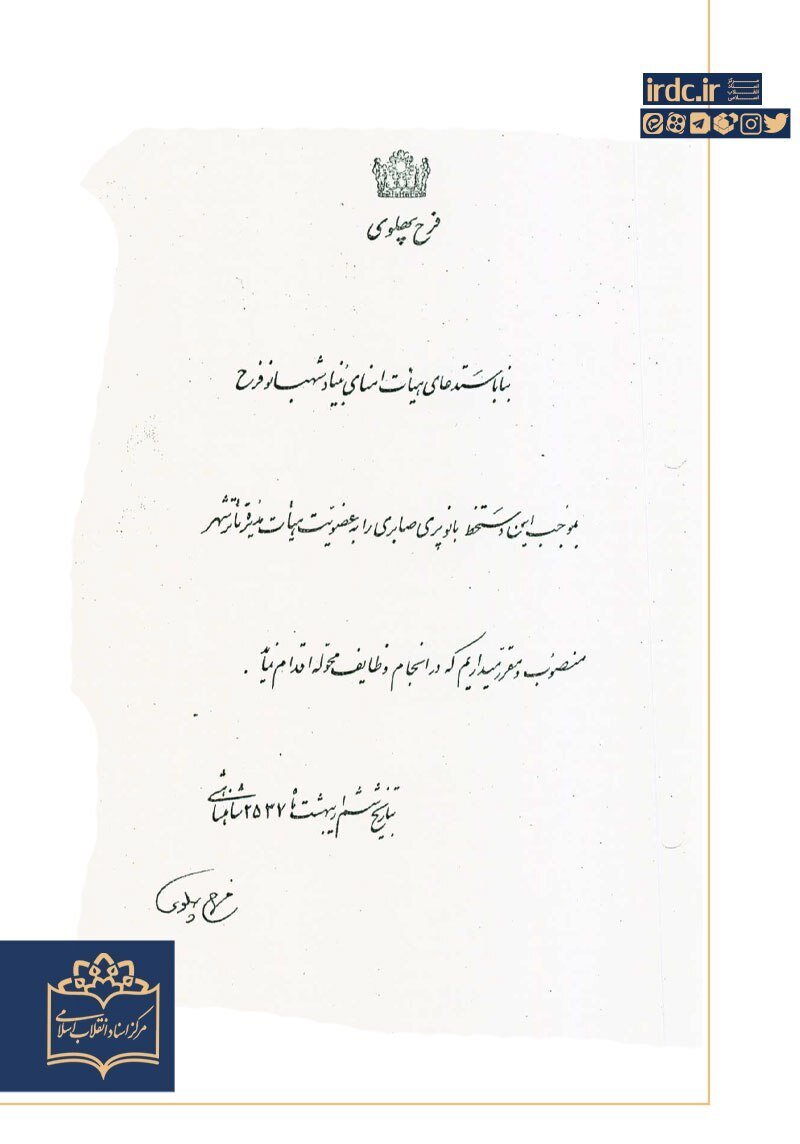 irdc.ir
مرکز
اسناد
انقلاب
اسلامی
فرح پهلوی
بنا باستدعای هیأت امنای بنیاد شهبانو فرح
بموجب این دستخط بانو پری صابری را به عضویت هیأت مدیره تاتر شهر
منصوب و مقرر میداریم که در انجام وظایف محوله اقدام نماید.
بتاریخ ششم اردیبهشت ماه ۲۵۳۷ شاهنشاهی
فرح پهلوی
مرکز اسناد انقلاب اسلامی